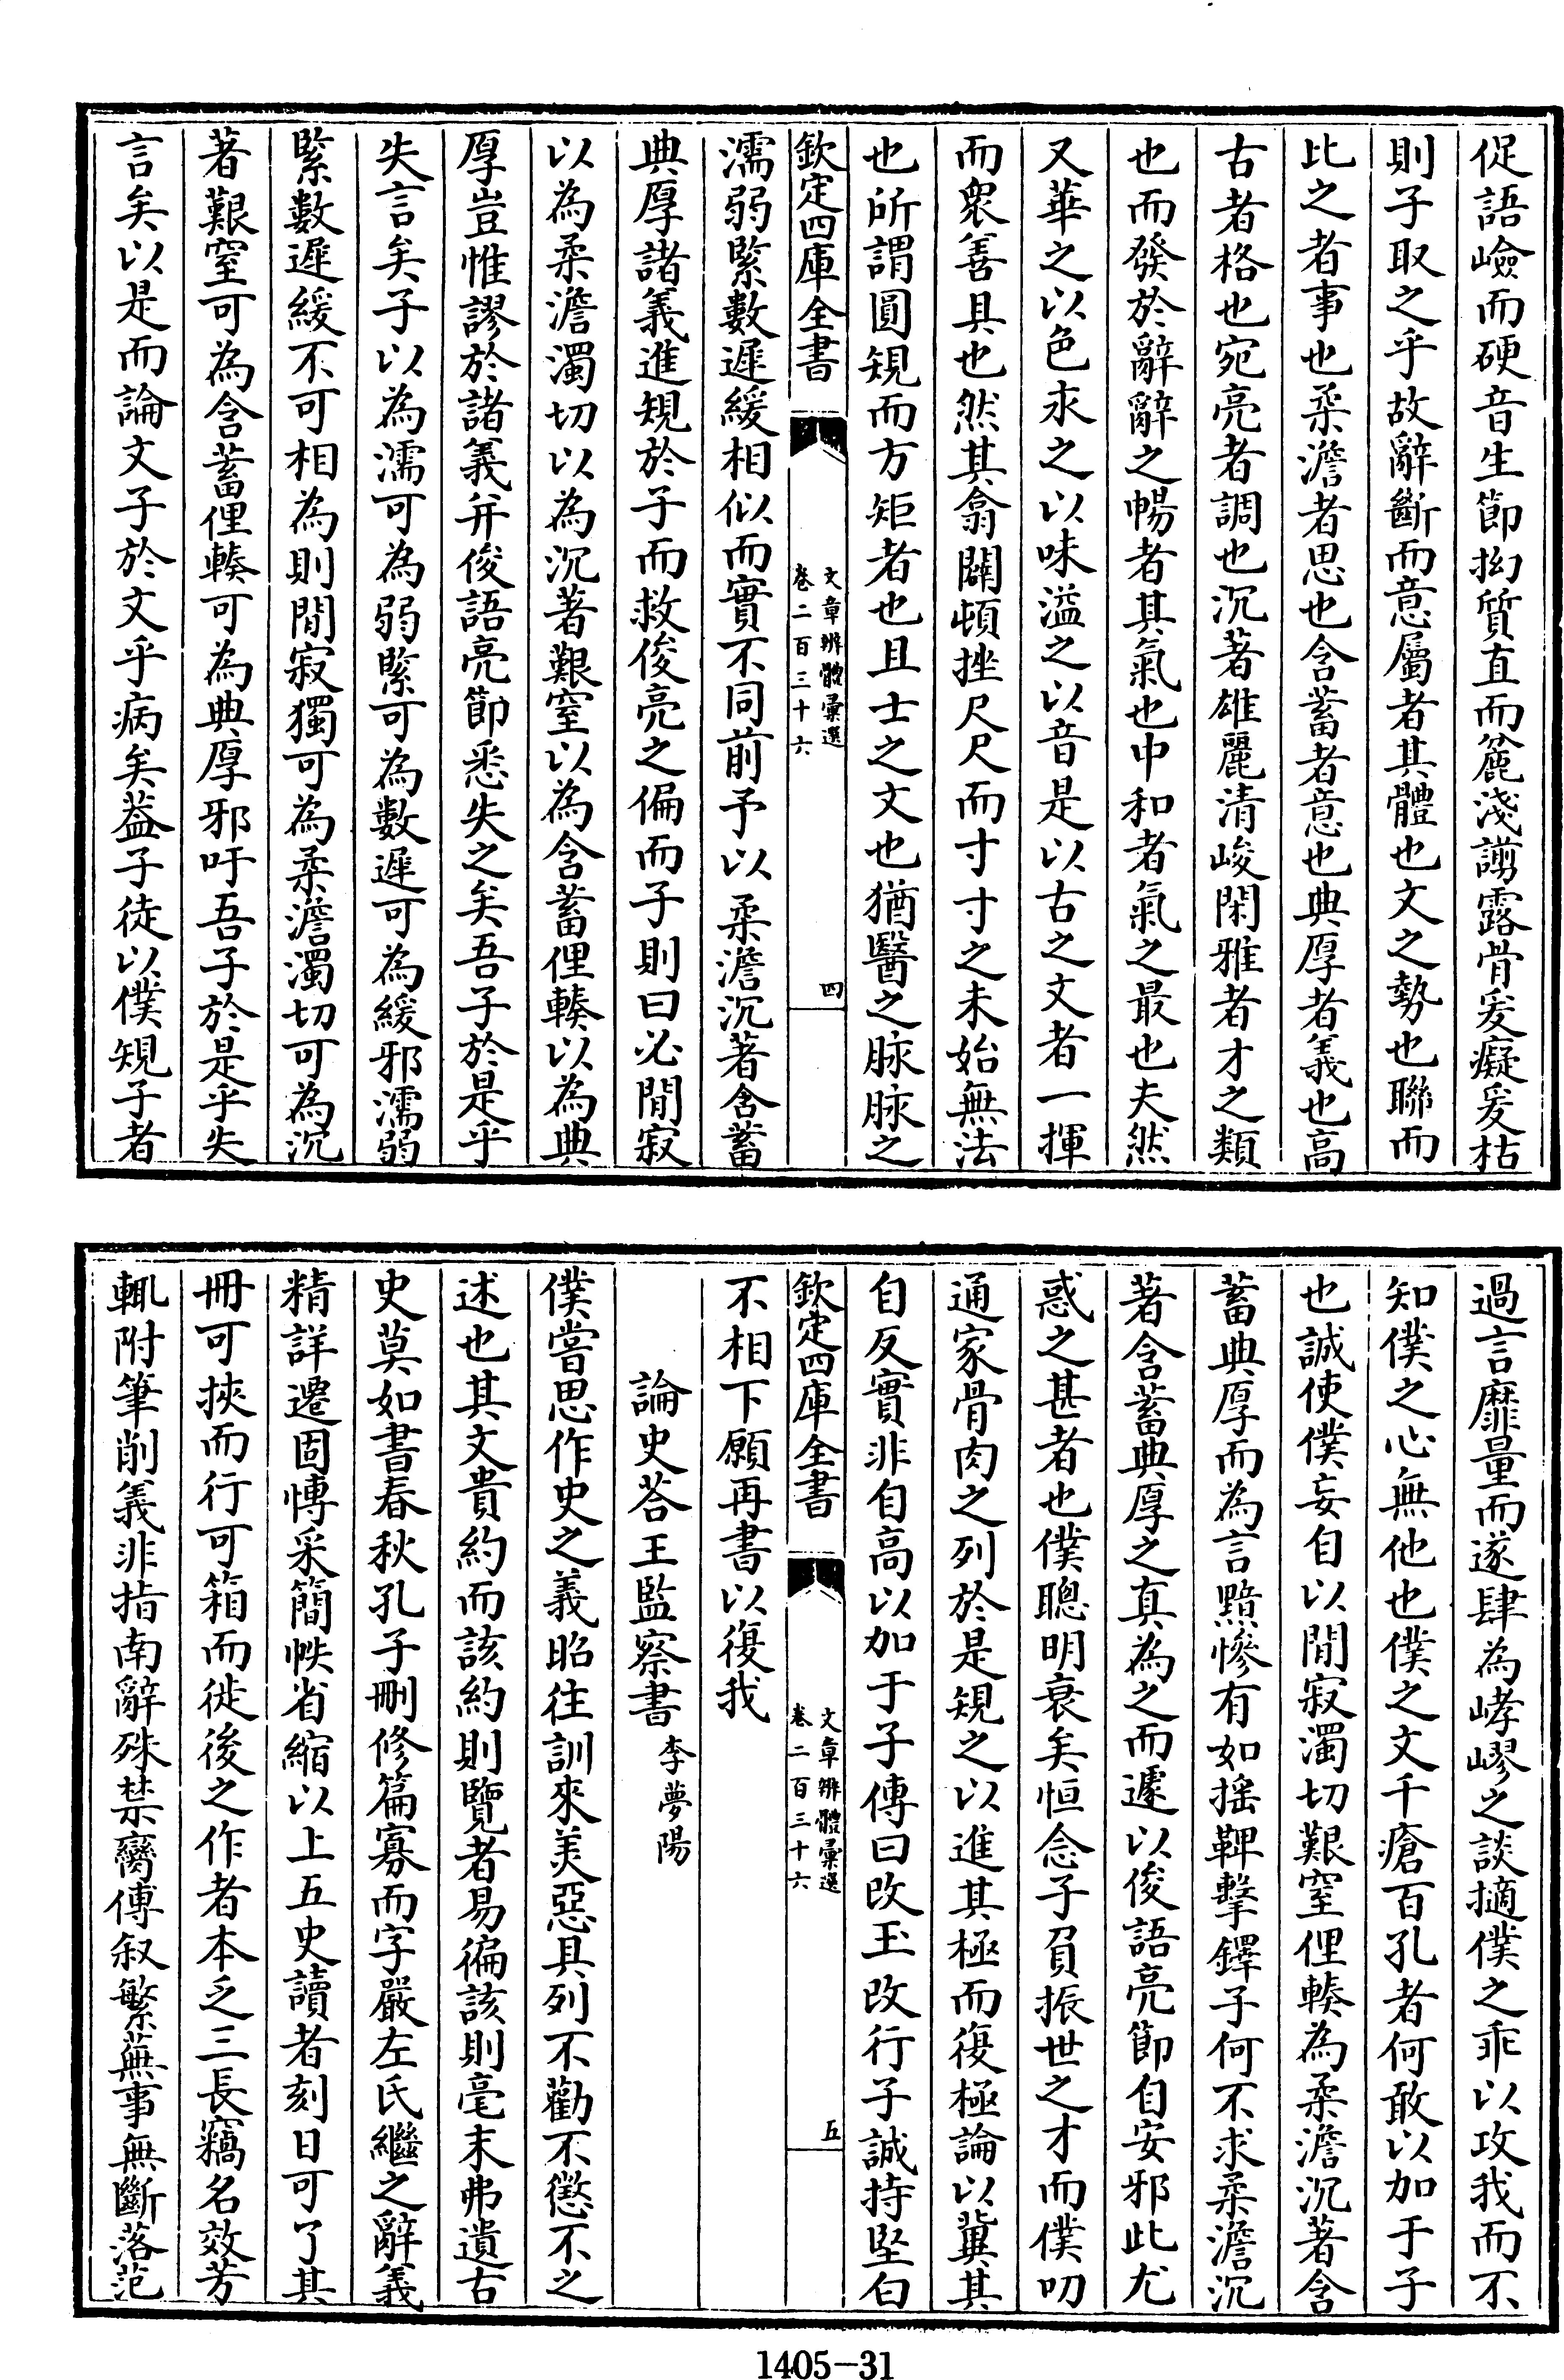 促語嶮而硬音生節拗質直而麄淺謭露骨爰癡爰枯
則子取之乎故辭斷而意屬者其體也文之勢也聯而
比之者事也柔澹者思也含蓄者意也典厚者義也高
古者格也宛亮者調也沉著雄麗清峻閑雅者才之類
也而發於辭辭之暢者其氣也中和者氣之最也夫然
又華之以色求之以味溢之以音是以古之文者一揮
而衆善具也然其翕闢頓挫尺尺而寸寸之未始無法
也所謂圓規而方矩者也且士之文也猶醫之脉脉之
欽定四庫全書
文章辨體彚選
卷二百三十六
四
濡弱緊數遲緩相似而實不同前予以柔澹沉著含蓄
典厚諸義進規於子而救俊亮之偏而子則曰必閒寂
以為柔澹濁切以為沉著艱窒以為含蓄俚輳以為典
厚豈惟謬於諸義并俊語亮節悉失之矣吾子於是乎
失言矣子以為濡可為弱緊可為數遲可為緩邪濡弱
緊數遲緩不可相為則閒寂獨可為柔澹濁切可為沉
著艱窒可為含蓄俚輳可為典厚邪吁吾子於是乎失
言矣以是而論文子於文乎病矣葢子徒以僕規子者
過言靡量而遂肆為嵺之談擿僕之乖以攻我而不
知僕之心無他也僕之文千瘡百孔者何敢以加于子
也誠使僕妄自以閒寂濁切艱窒俚輳為柔澹沉著含
蓄典厚而為言黯慘有如搖鞞擊鐸子何不求柔澹沉
著含蓄典厚之真為之而遽以俊語亮節自安邪此尤
惑之甚者也僕聰明衰矣恒念子負振世之才而僕叨
通家骨肉之列於是規之以進其極而復極論以冀其
自反實非自高以加于子傳曰改玉改行子誠持堅白
欽定四庫全書
文章辨體彚選
卷二百三十六
五
不相下願再書以復我
論史荅王監察書 李夢陽
僕嘗思作史之義昭往訓來美惡具列不勸不懲不之
述也其文貴約而該約則覽者易徧該則毫末弗遺古
史莫如書春秋孔子刪修篇寡而字嚴左氏繼之辭義
精詳遷固愽采簡帙省縮以上五史讀者刻日可了其
冊可挾而行可箱而徙後之作者本乏三長竊名效芳
輒附筆削義非指南辭殊禁臠傳叙繁蕪事無斷落范
1405－31